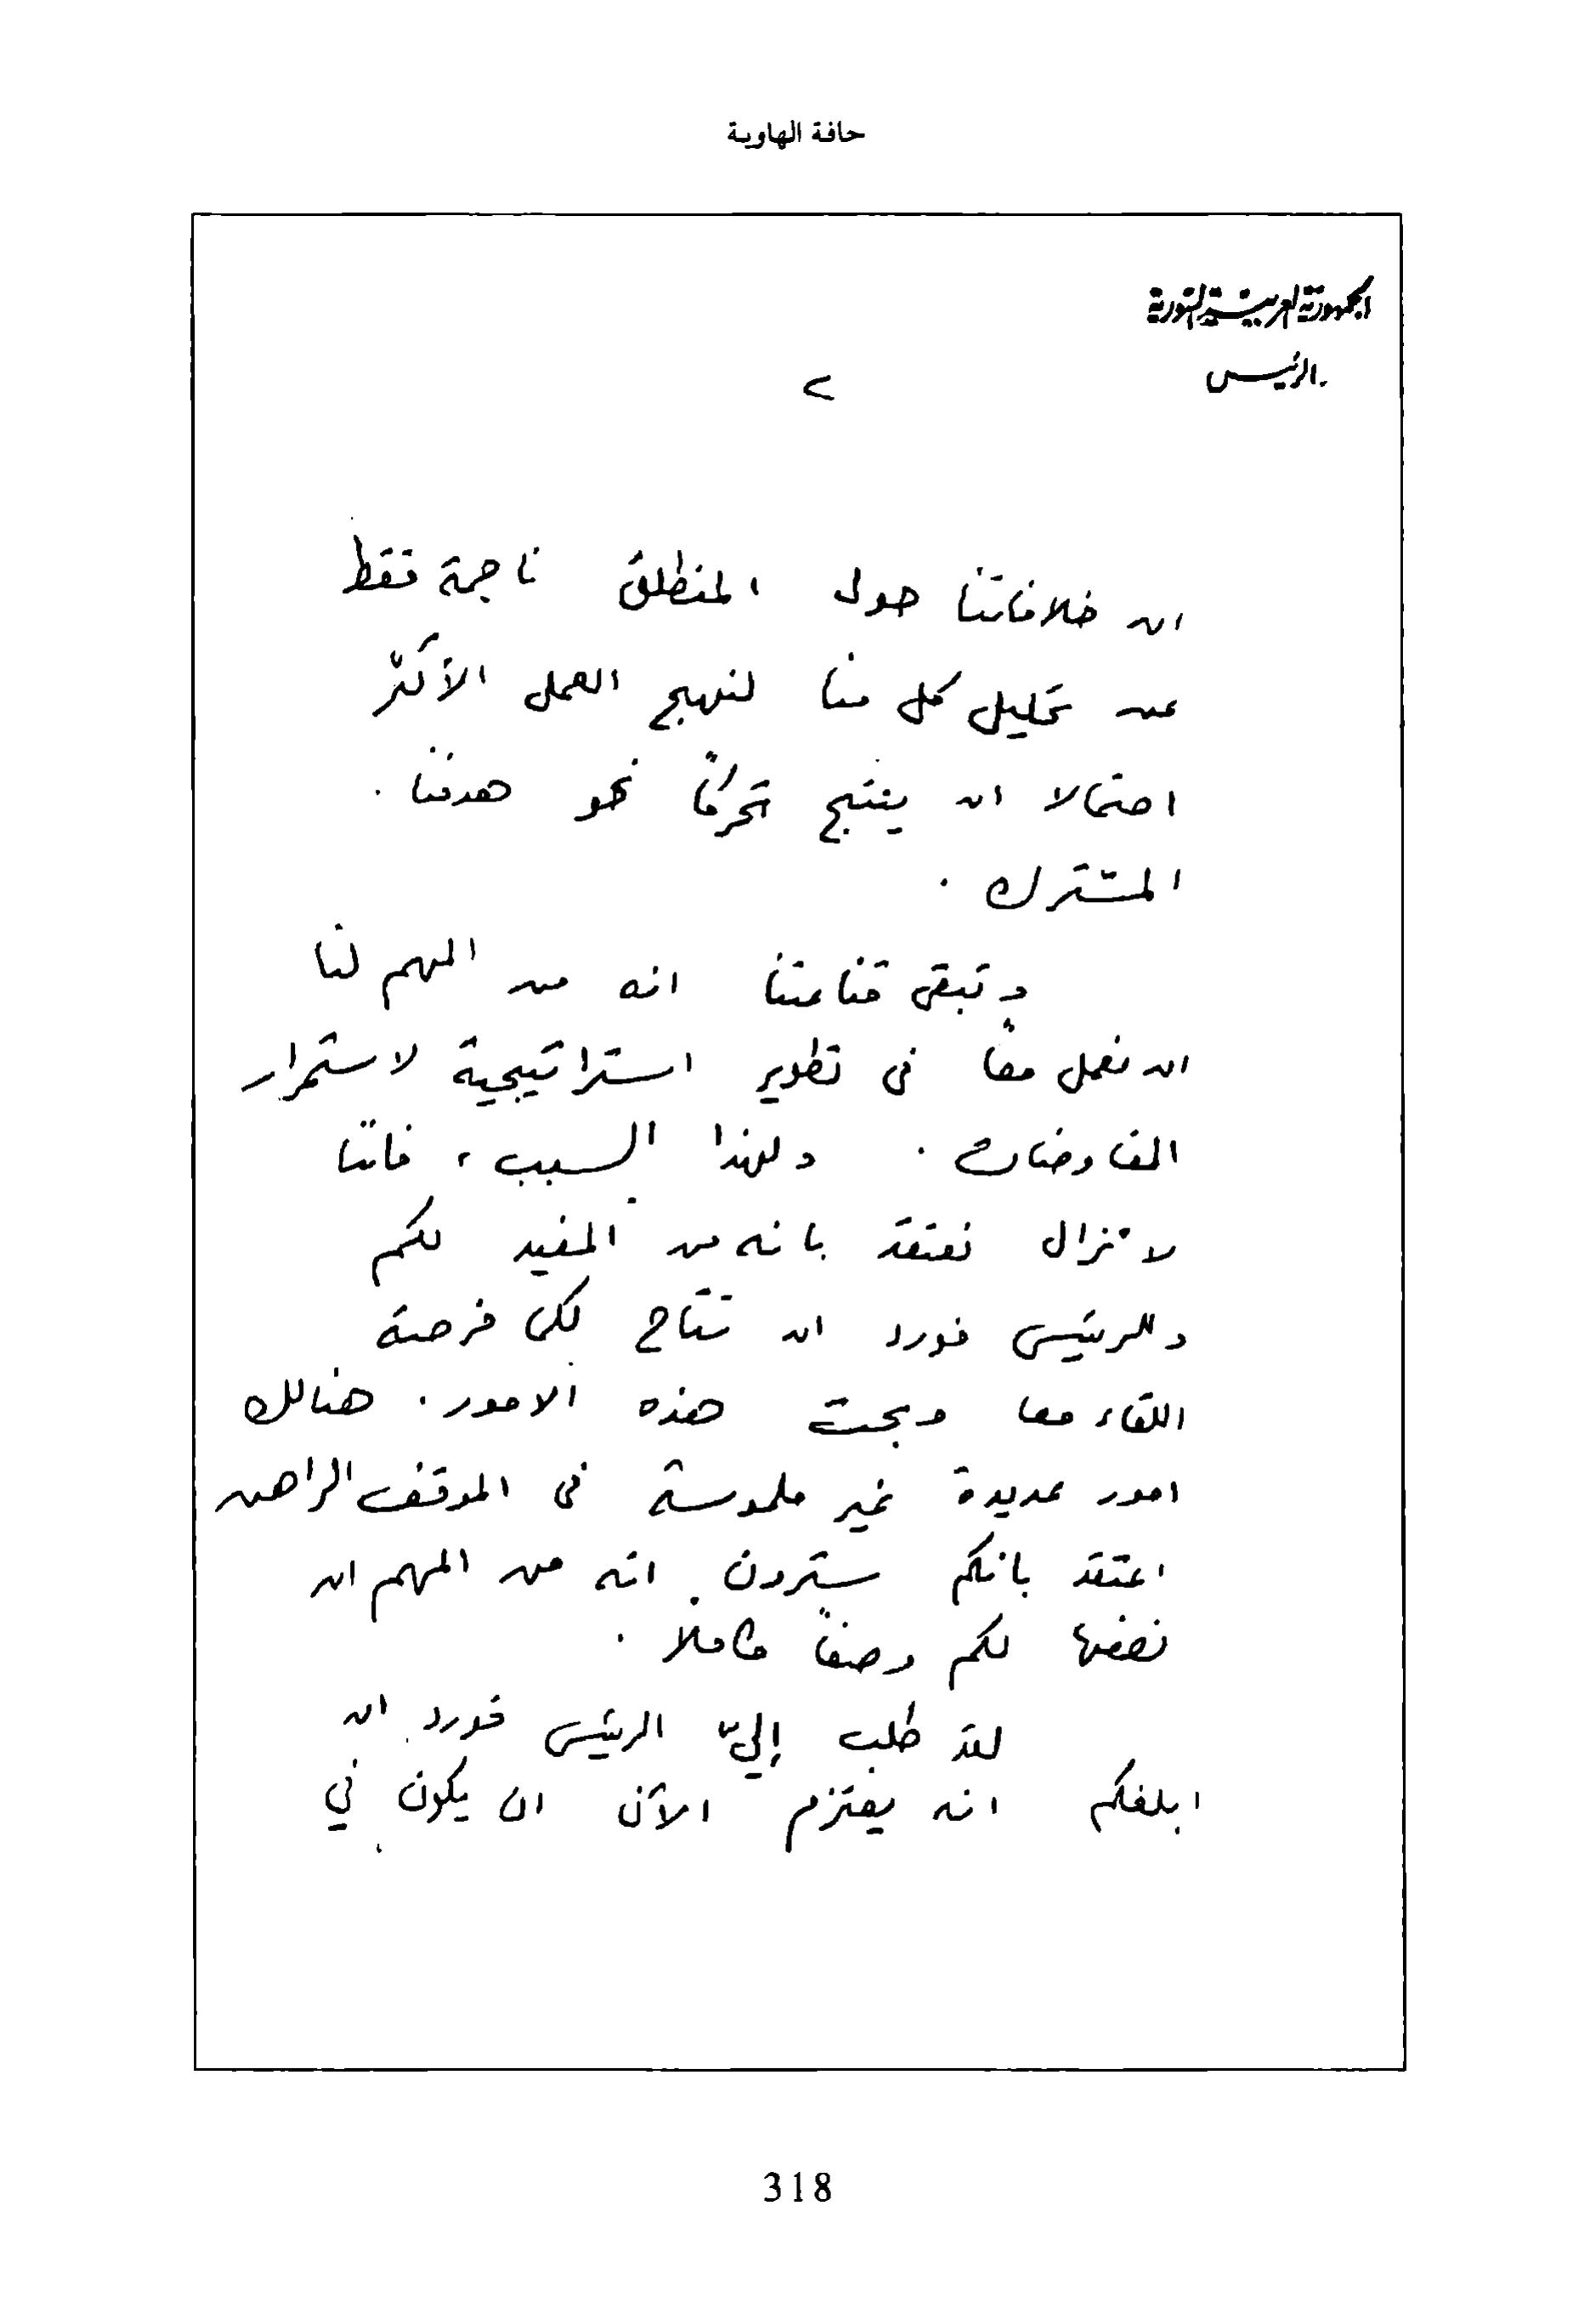 حافة الهاوية
الجمهورية العربية السورية
الرئيس
٢
ان خلافاتنا حول المنطلق ناجمة فقط
عن تحليل كل منا لنهج العمل الأكثر
احتمالا ان ينتج تحركاً نحو هدفنا
المشترك .
وتبقى قناعتنا انه من المهم لنا
ان نعمل معاً في تطوير استراتيجية لاستمرار
المفاوضات . ولهذا السبب ، فاننا
لا نزال نعتقد بانه من المفيد لكم
وللرئيس فورد ان تتاح لكما فرصة
اللقاء معا وبحث هذه الامور . هنالك
امور عديدة غير ملموسة في الموقف الراهن
اعتقد بانكم سترون انه من المهم ان
نصفها لكم وصفاً كاملاً .
لقد طلب إليّ الرئيس فورد ان
ابلغكم انه يعتزم الآن ان يكون في
318